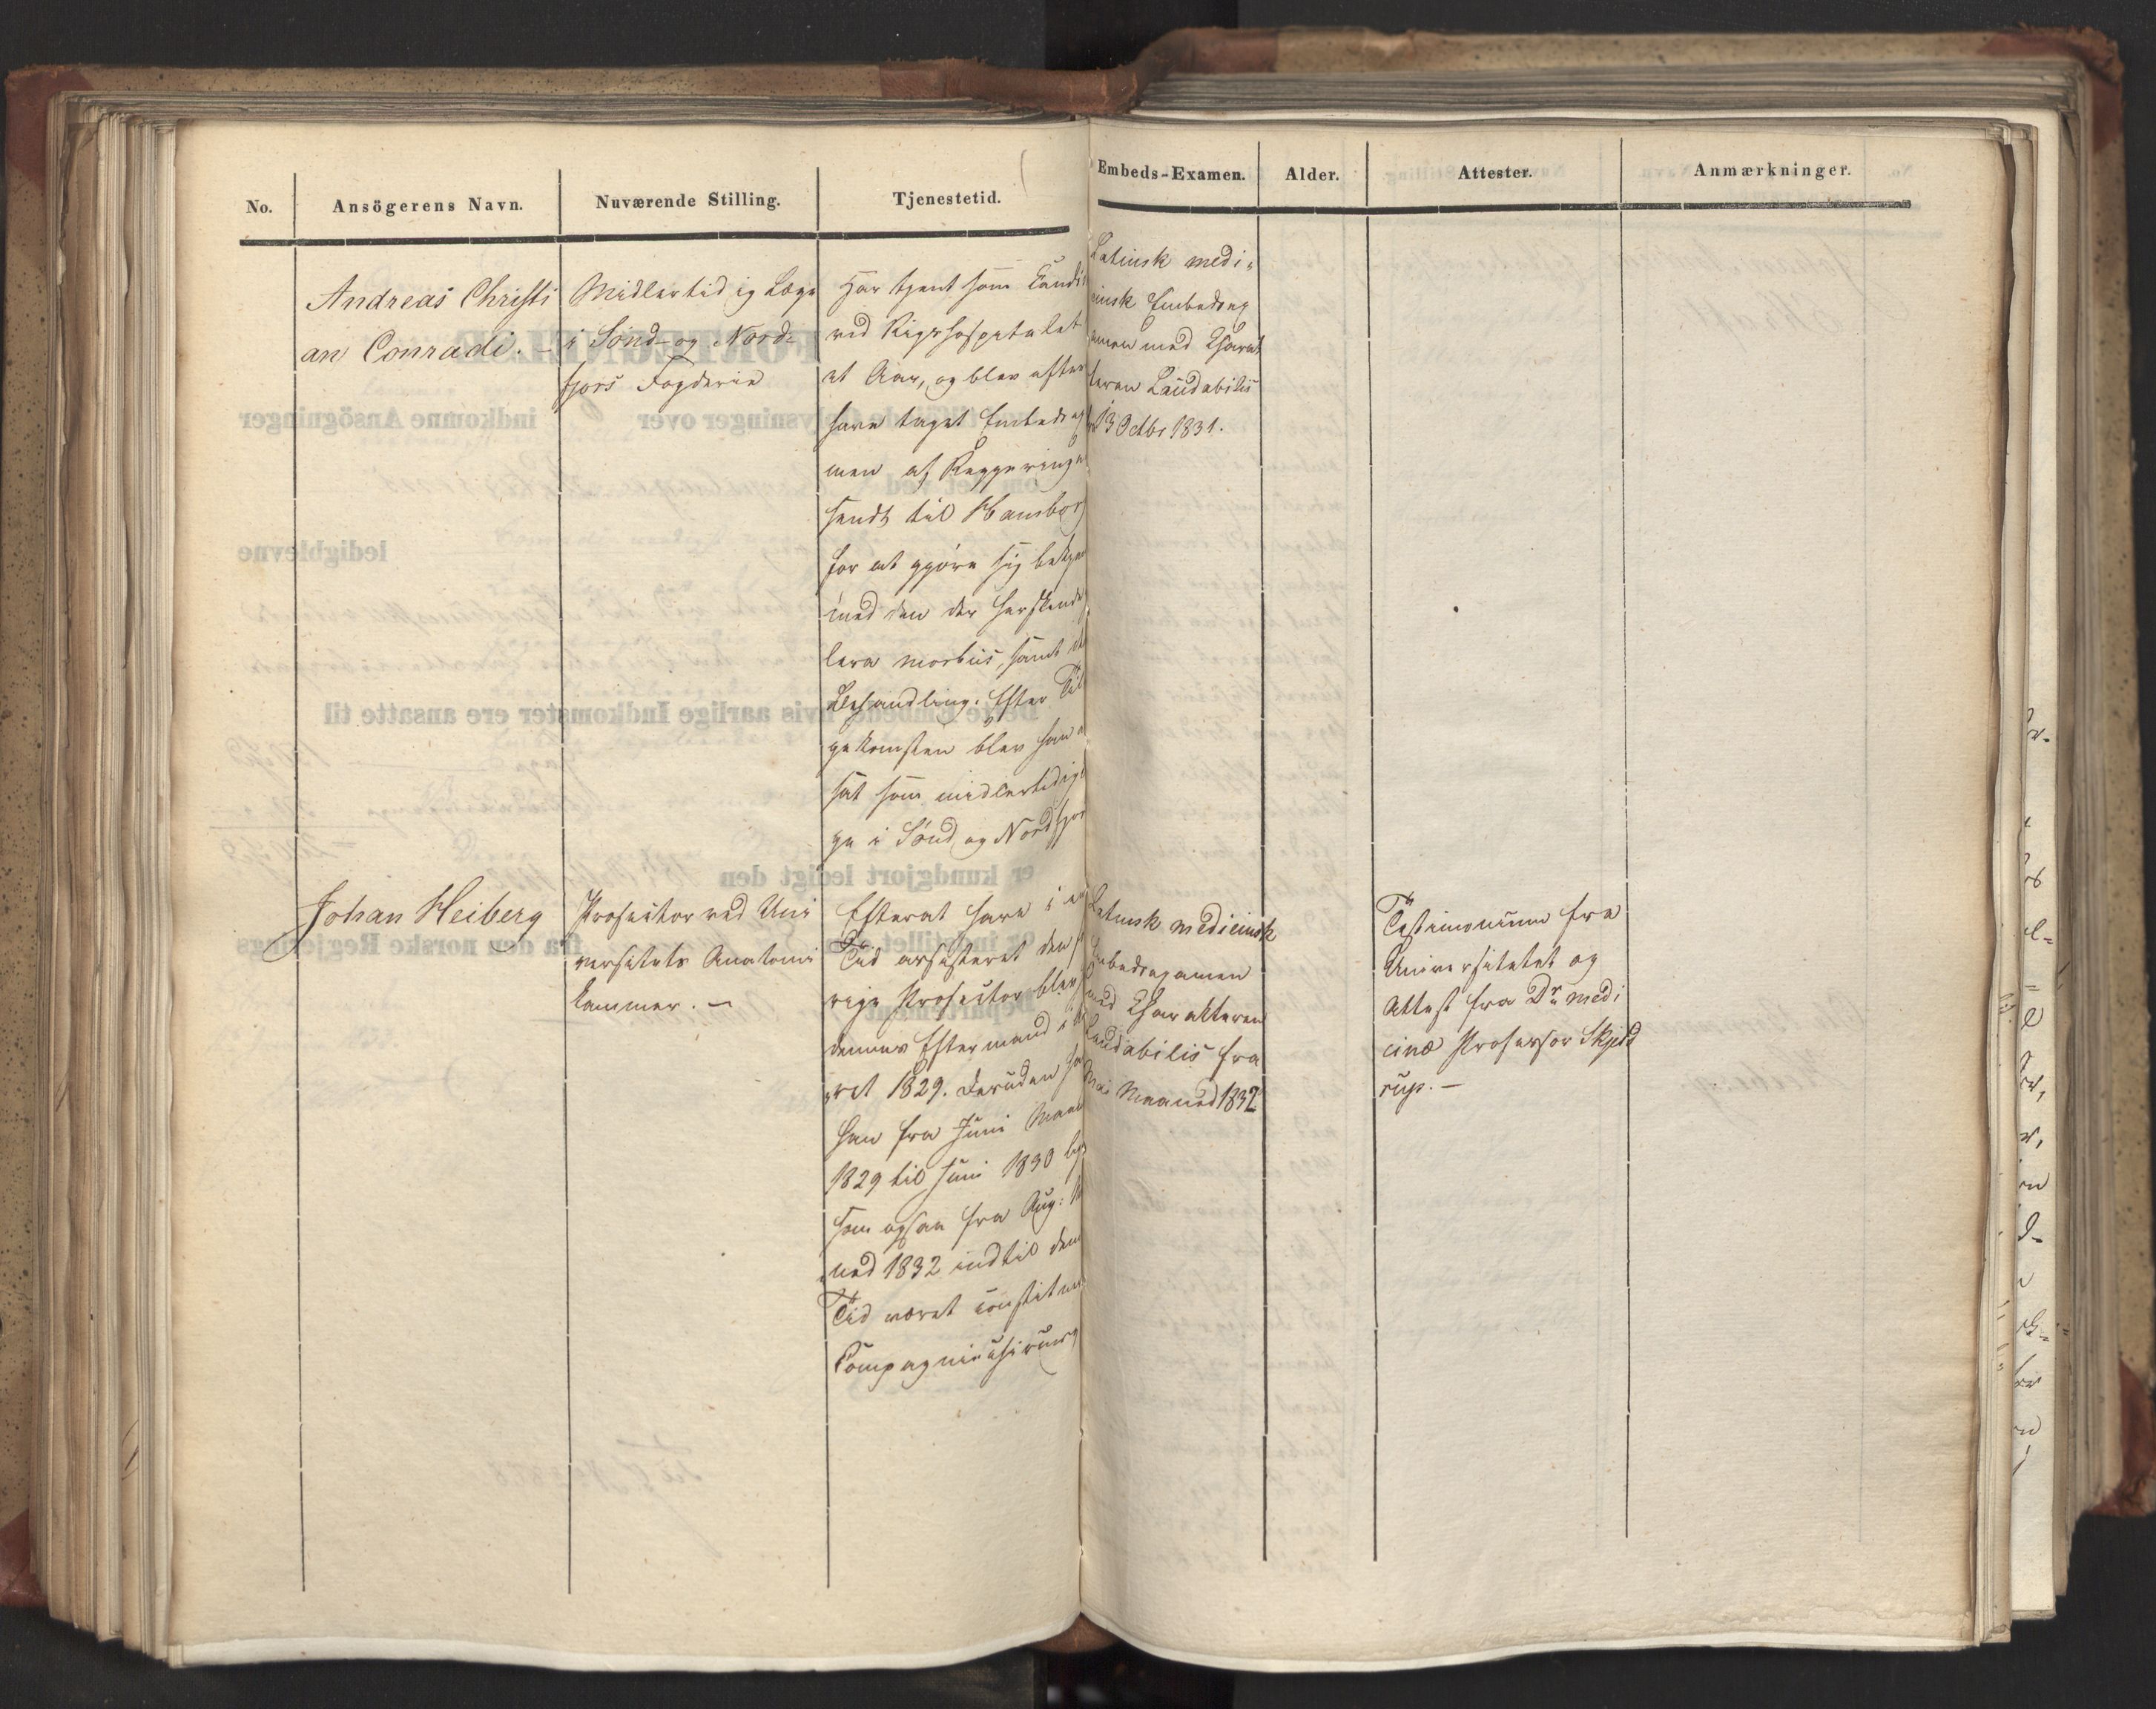 No.
Ansögerens Navn.
Nuværende Stilling.
Tjenestetid.
Embeds-Examen.
Alder.
Attester.
Anmærkninger.
Andreas Christi
an Conradi. -
Midlertidig Læge
i Sönd- og Nord-
fjors Fogderie
Har tjent som Candi
ved Rigshospitalet
et Aar, og blev efter
have taget Embedsex
men af Regjeringen
sendt til Hambor
for at gjöre sig bekje
med den der herskende
lera morbus, samt de
Behandling. Efter Til
gekomsten blev han a
sat som midlertidig
ge i Sönd og Nordfjor
Latinsk medi-
cinsk Embedsex
amen med Charak
teren Laudabilis
13 Octbr 1831.
Johan Heiberg
Prosector ved Uni
versitets Anatomi
kammer. -
Efterat have i en
Tid assisteret den f
rige Prosector blev
dennes Eftermand i
ret 1829. Desuden ha
han fra Juni Maan
1829 til Juni 1830
som ogsaa fra Aug: M
ned 1832 indtil den
Tid været constitue
Compagniechirurg
Latinsk medicinsk
Embedsexamen
med Charakteren
Laudabilis fra
Mai Maaned 1832
Testimonium fra
Universitetet og
Attest fra Dr medi
cinæ Professor Skjeld
rup. -